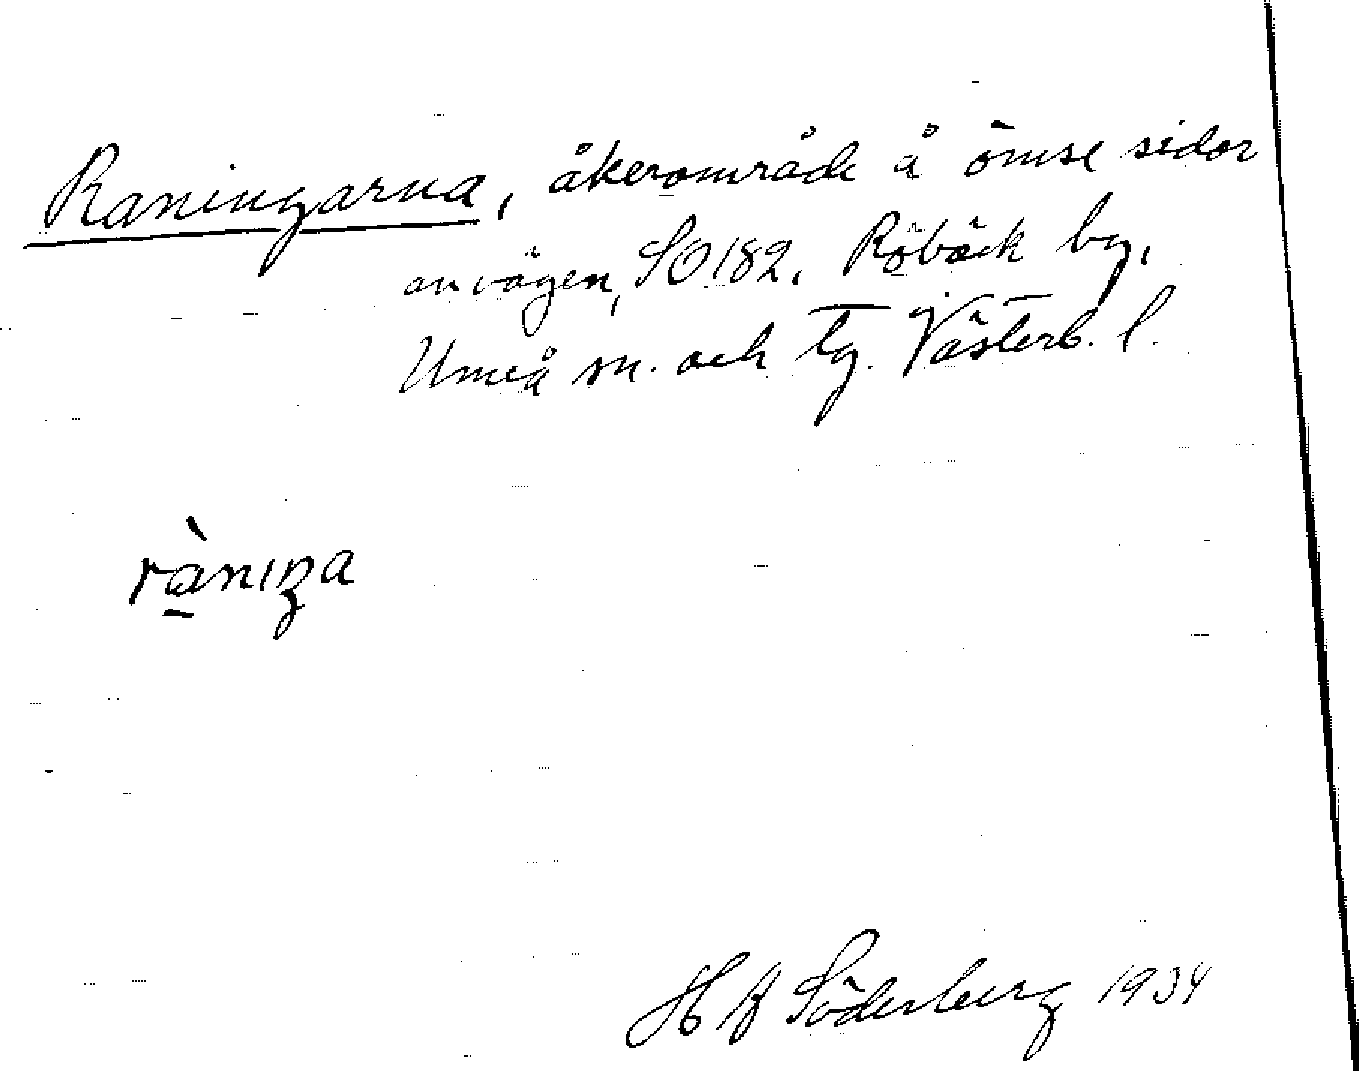 Raningarna, åkerområde å ömse sidor
om vägen, SO 182. Röbäck by,
Umeå sn. och tg. Västerb. l.
ràniŋa
H B Söderberg 1934